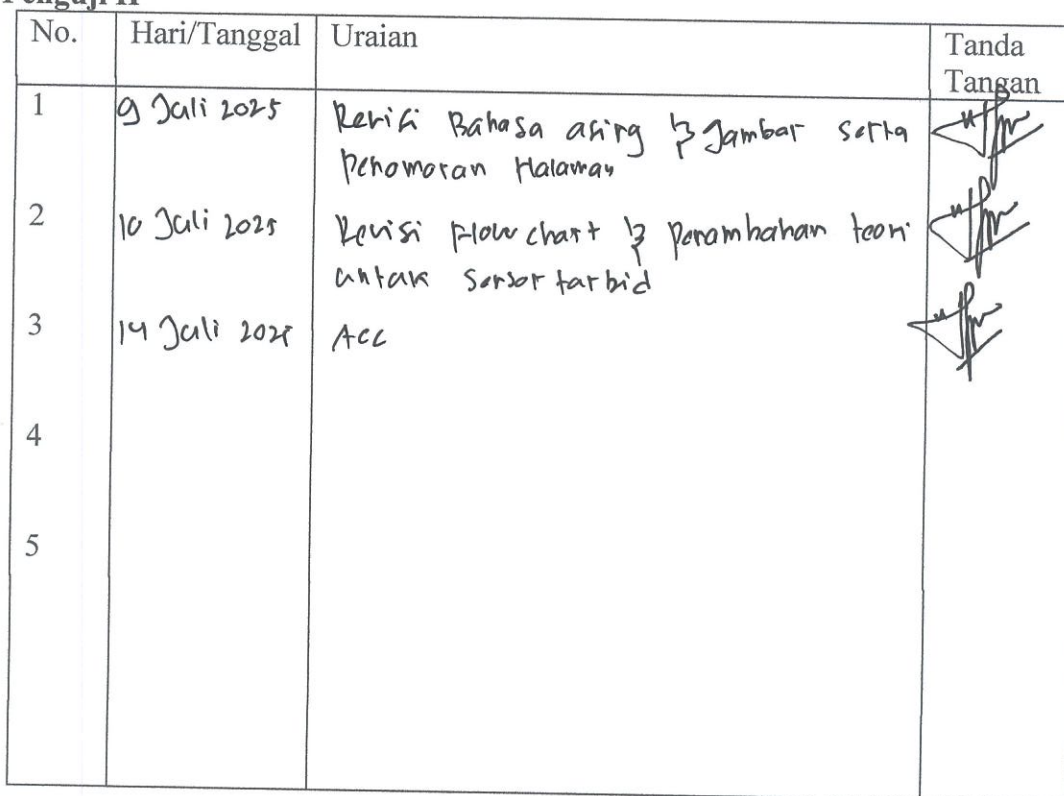 Penguji II
No. Hari/Tanggal Uraian Tanda
Tangan
1 9 Juli 2025 Revisi Bahasa asing & Gambar serta
Penomoran Halaman
2 10 Juli 2025 Revisi Flowchart & Penambahan teori
untuk sensor turbid
3 14 Juli 2025 ACC
4
5